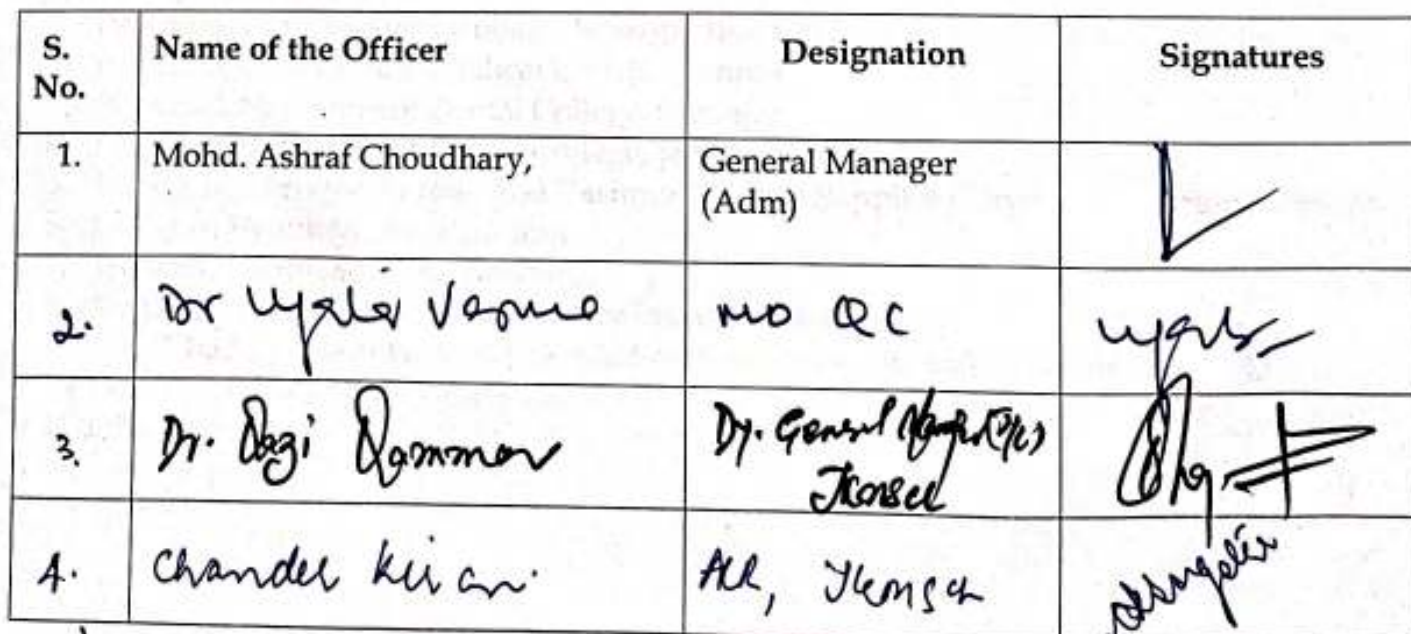 S. No. Name of the Officer Designation Signatures
1. Mohd. Ashraf Choudhary, General Manager (Adm)
2. Dr Verma MO QC
3. Dr. Qazi Qammar Dy. General
4. Chander Kiran